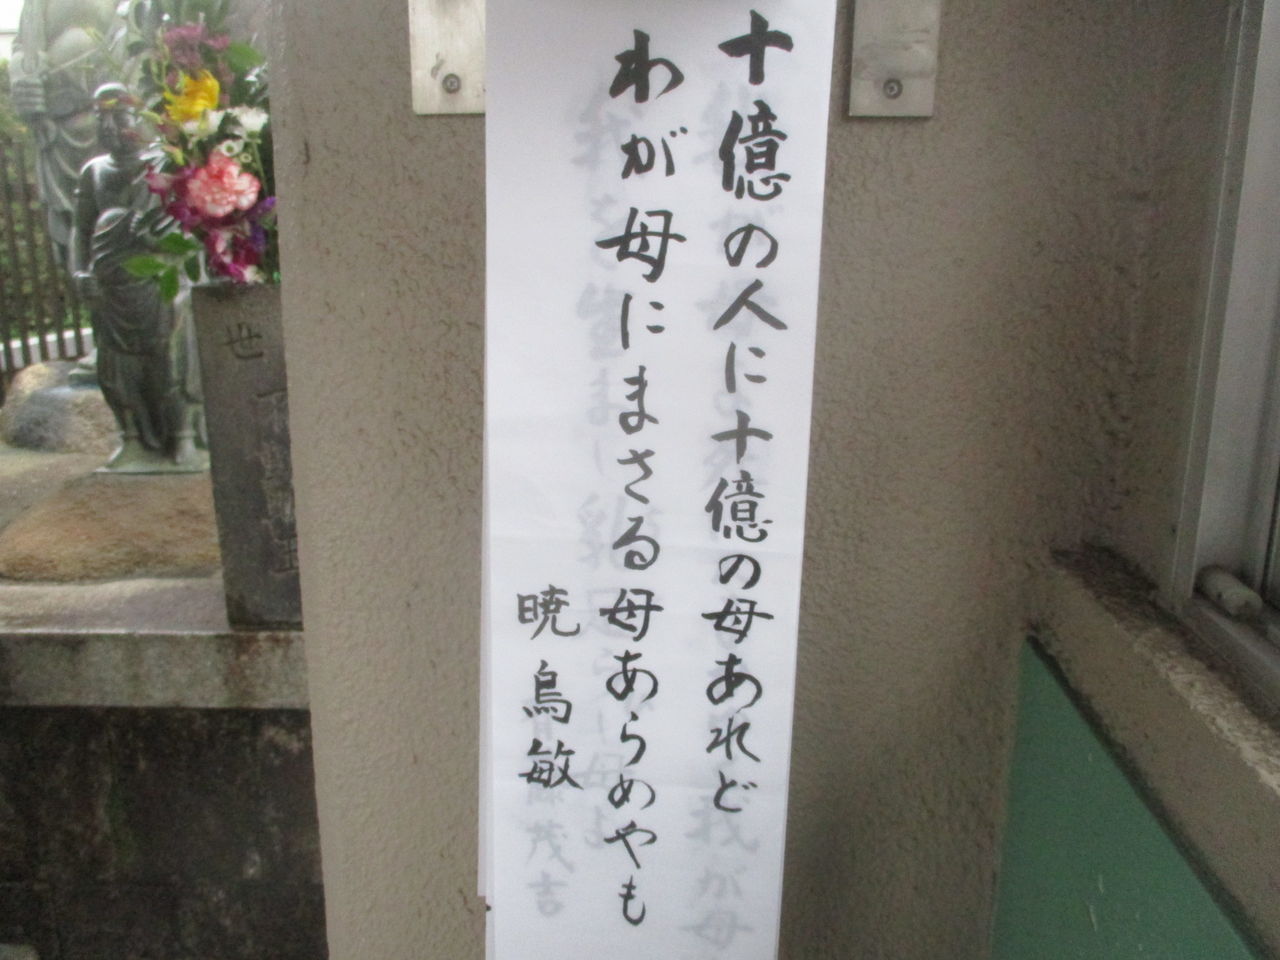 十億の人に十億の母あれど
わが母にまさる母あらめやも
暁烏敏
茂吉
我が母
世